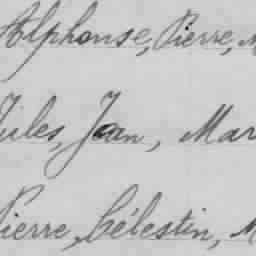 Alphonse, Pierre, M
Jules, Jean, Mar
Pierre, Célestin, M